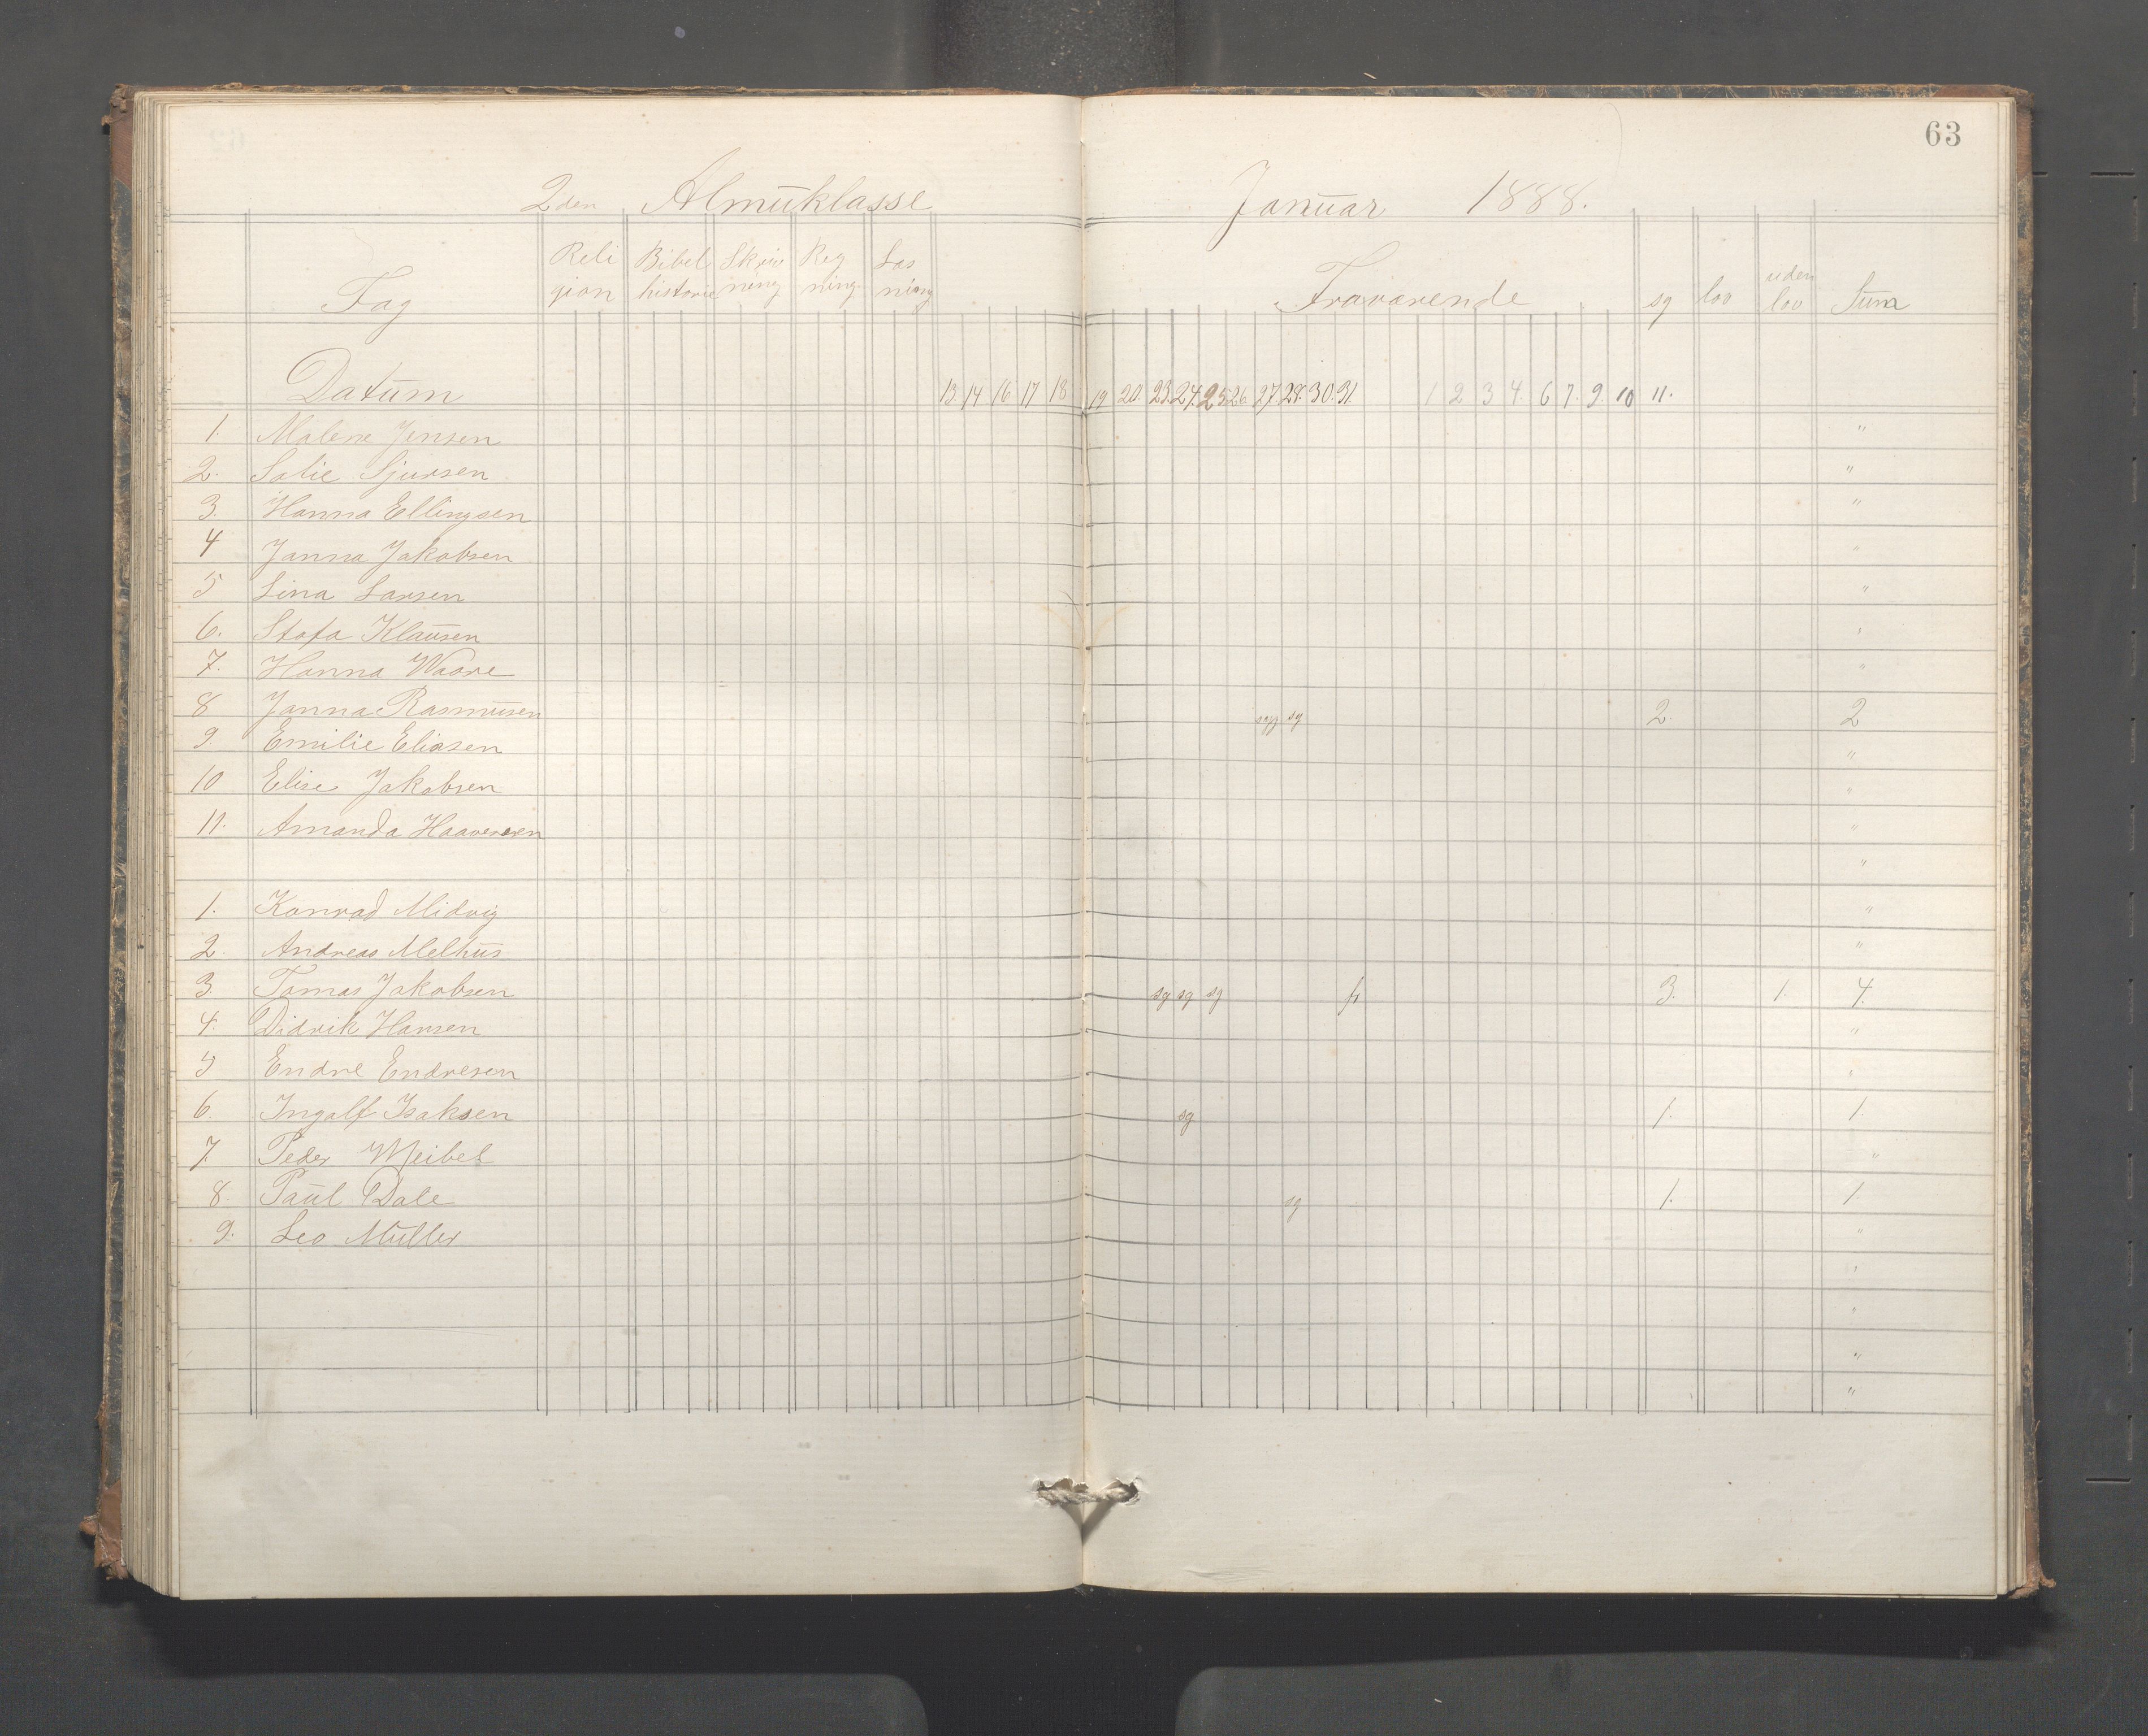 63
2den Almuklasse Januar 1888.
Fag Religion Bibelhistorie Skrivning Regning Læsning Fraværende sg lov uden lov Sum
Datum 13. 14 16 17 18 19 20. 23. 24. 25 26 27. 28. 30. 31. 1 2 3 4. 6 7. 9. 10 11.
1. Malene Jensen "
2. Sofie Sjursen "
3. Hanna Ellingsen "
4 Janna Jakobsen "
5 Lina Larsen "
6. Klausen "
7. Hanna Waare "
8 Janna Rasmusen sg sg 2 2
9. Emilie Eliasen "
10 Elise Jakobsen "
11. Amanda "
"
1. Konrad Midvig "
2. Andreas Melhus "
3. Tomas Jakobsen sg sg sg 3. 1. 4.
4. Didrik Hansen "
5 Endre Endresen "
6. Ingolf Isaksen sg 1. 1.
7 Peder Meibel "
8. Paul Dale sg 1. 1.
9. Leo Muller "
"
"
"
"